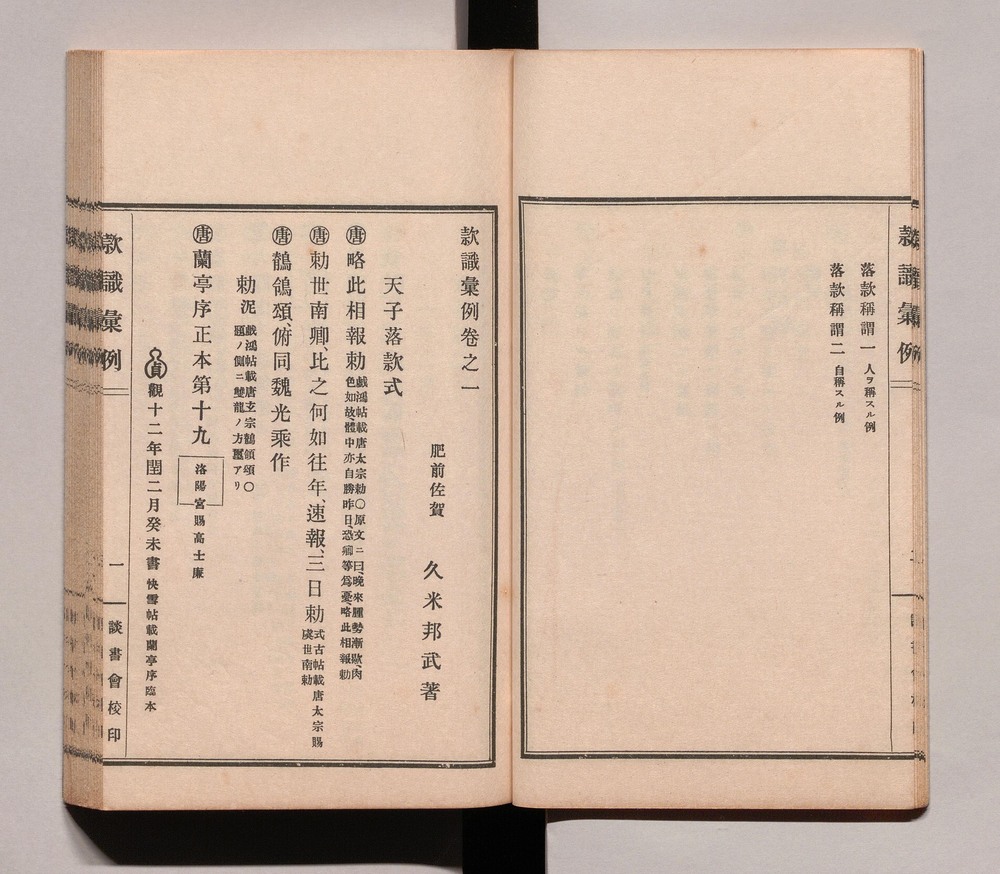 款識彙例
落款稱謂一 人ヲ稱スル例
落款稱謂二 自稱スル例
款識彙例卷之一
肥前佐賀 久米邦武著
天子落款式
唐 略此相報勅 戲鴻帖載唐太宗勅〇原文ニ曰、晚來腫勢漸歇、肉
色如故、體中亦自勝昨日、恐卿等爲憂、略此相報勅
唐 勅世南卿、比之何如往年、速報、三日勅 式古帖載唐太宗賜
虞世南勅
唐 鶺鴒頌、俯同魏光乘作
勅 泥 戲鴻帖載唐玄宗鶺鴒頌〇
題ノ側ニ雙龍ノ方璽アリ
唐 蘭亭序正本第十九 洛陽宮賜高士廉
貞觀十二年閏二月癸未書 快雪帖載蘭亭序臨本
款識彙例
一
談書會校印